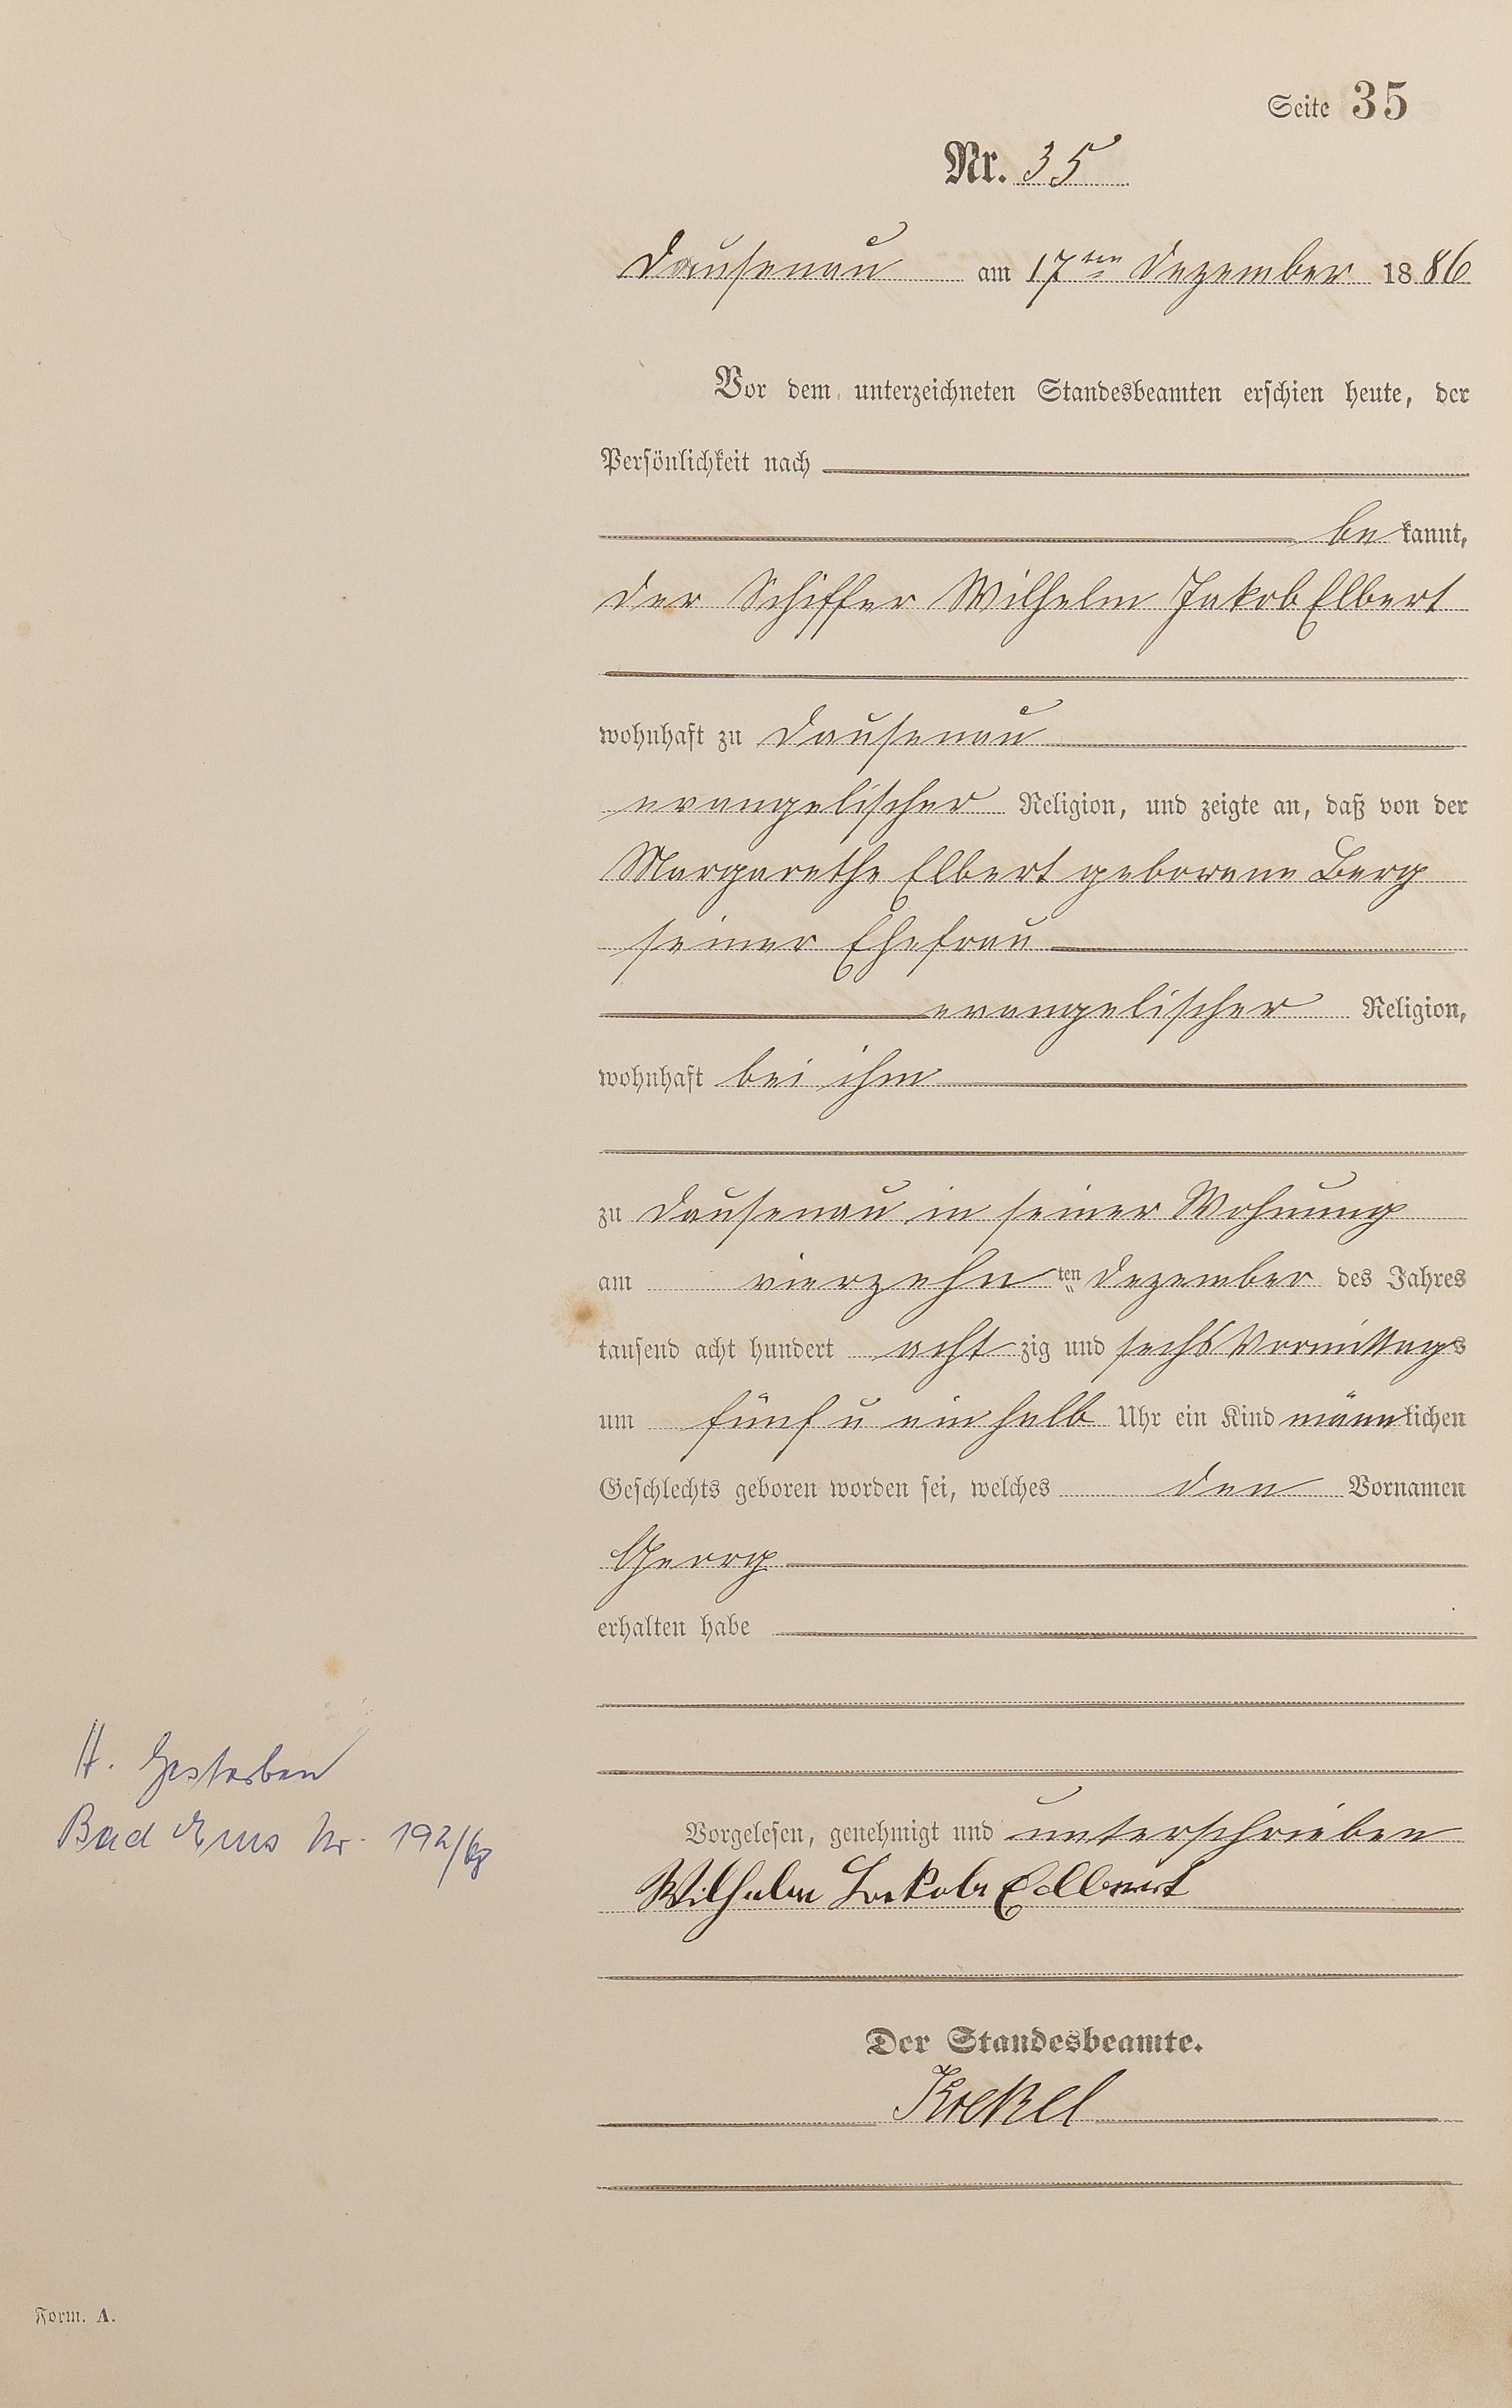 Seite 35
Nr. 35
Dausenau am 17ten Dezember 1886
Vor dem unterzeichneten Standesbeamten erschien heute, der
Persönlichkeit nach
be kannt,
der Schiffer Wilhelm Jakob Elbert
wohnhaft zu Dausenau
evangelischer Religion, und zeigte an, daß von der
Margarethe Elbert geborene Berg
seiner Ehefrau
evangelischer Religion,
wohnhaft bei ihm
zu Dausenau in seiner Wohnung
am vierzehn ten Dezember des Jahres
tausend acht hundert acht zig und sechs Vormittags
um fünf u ein halb Uhr ein Kind männlichen
Geschlechts geboren worden sei, welches den Vornamen
Georg
erhalten habe
Vorgelesen, genehmigt und unterschrieben
Wilhelm Jakob Elbert
Der Standesbeamte.
H. Gestorben
Bad Ems Nr. 192/
Form. A.